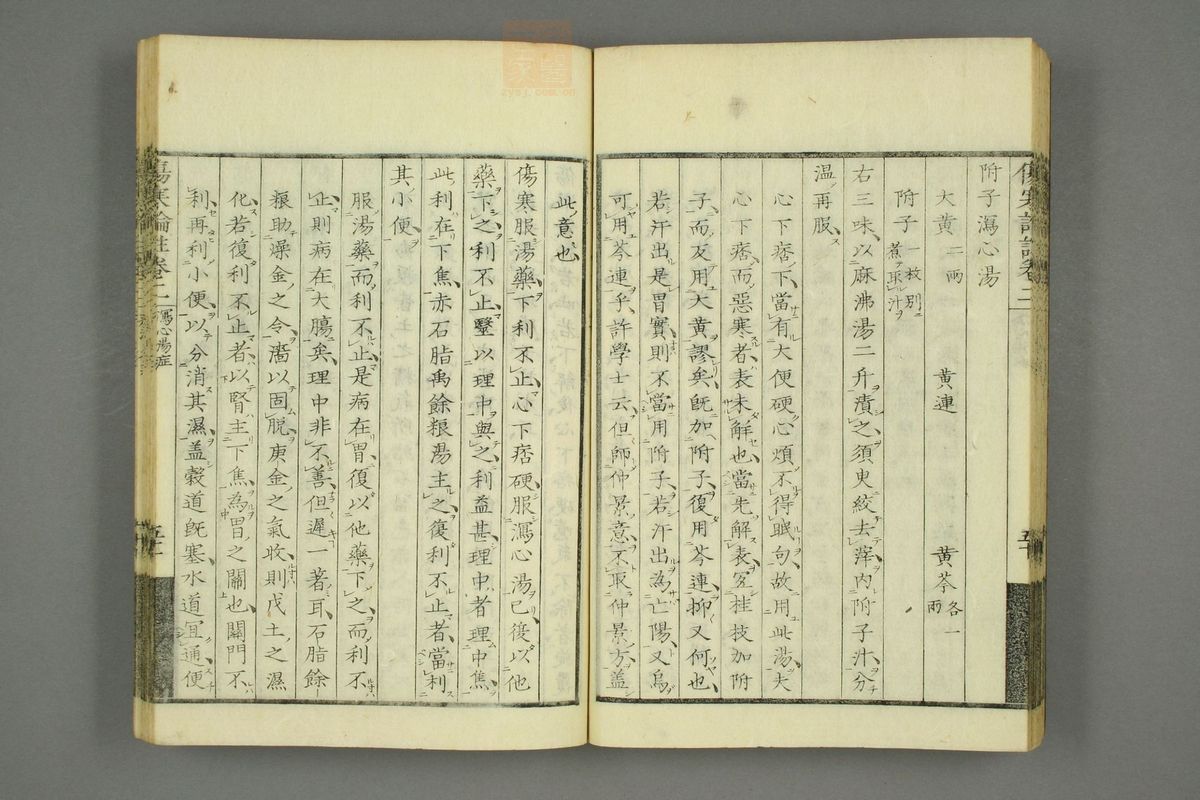 附子瀉心湯
大黄二兩 黄連 黄芩各一兩
附子一枚別煮取汁
右三味以麻沸湯二升漬之須臾絞去滓内附子汁分
温再服
心下痞下當有大便硬心煩不得眠句故用此湯夫
心下痞而惡寒者表未解也當先解表宜桂枝加附
子而反用大黄謬矣既加附子復用芩連抑又何也
若汗出是胃實則不當用附子若汗出為亡陽又烏
可用芩連乎許學士云但師仲景意不取仲景方蓋
此意也
傷寒服湯藥下利不止心下痞硬服瀉心湯已復以他
藥下之利不止醫以理中與之利益甚理中者理中焦
此利在下焦赤石脂禹餘粮湯主之復利不止者當利
其小便
服湯藥而利不止是病在胃復以他藥下之而利不
止則病在大腸矣理中非不善但遲一著耳石脂餘
粮助燥金之令濇以固脱庚金之氣收則戊土之濕
化若復利不止者以腎主下焦為胃之關也關門不
利再利小便以分消其濕蓋穀道既塞水道宜通便
傷寒論註卷二 瀉心湯症